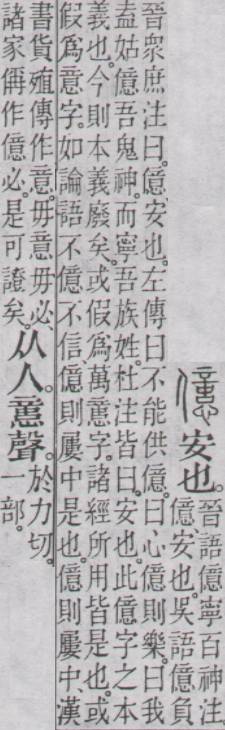 億安也。
晉語億寧百神注。
億、安也。吳語億負
晉眾庶注曰。億、安也。左傳曰不能供億。曰心億則樂。曰我
盍姑億吾鬼神。而寧吾族姓。杜注皆曰。安也。此億字之本
義也。今則本義廢矣。或假爲萬𢡃字。諸經所用皆是也。或
假爲意字。如論語不億不信、億則屢中是也。億則屢中、漢
書貨殖傳作意。毋意毋必、
諸家偁作億必。是可證矣。
从人𢡃聲。
於力切。
一部。